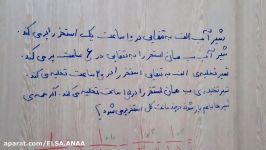 شیر آب الف به تنهایی در ۱۰ ساعت یک استخر را پر می کند
شیر آب ب همان استخر را به تنهایی در ۶ ساعت پر می کند.
شیر تخلیه ی الف به تنهایی استخر را در ۲۰ ساعت تخلیه می کند.
شیر تخلیه ی ب همان استخر را در ۱۵ ساعت تخلیه می کند. اگر همه ی
شیرها با هم باز شوند در چند ساعت کل استخر پر می شود؟
aparat.com/ELSA.ANAA